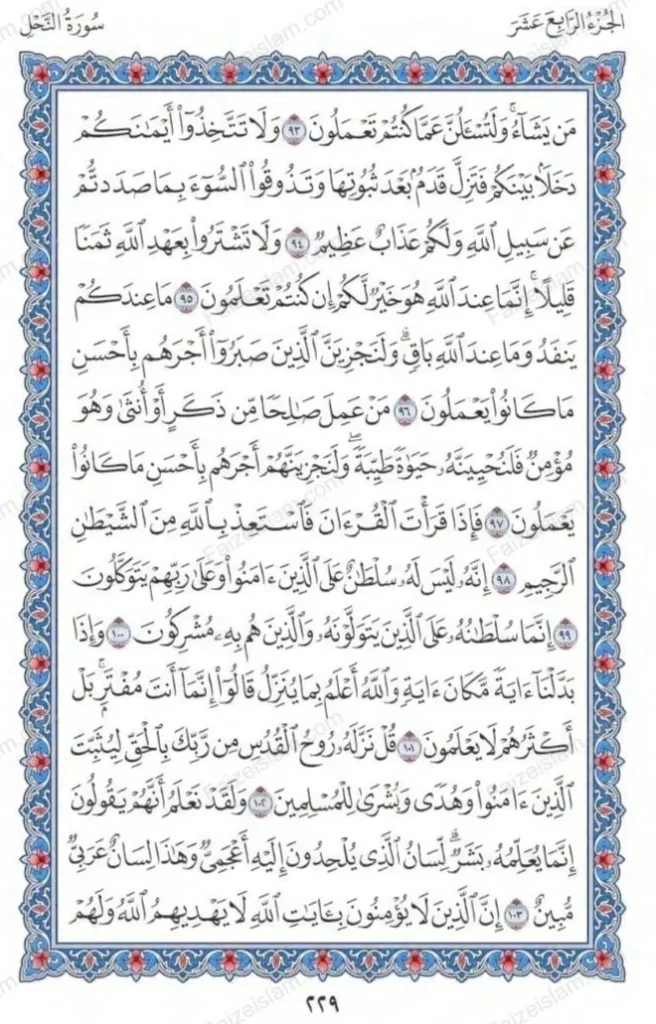 الجُزْءُ الرَّابِعَ عَشَرَ
سُورَةُ النَّحْلِ
مَن يَشَآءُ ۚ وَلَتُسْـَٔلُنَّ عَمَّا كُنتُمْ تَعْمَلُونَ ٩٣ وَلَا تَتَّخِذُوٓا۟ أَيْمَـٰنَكُمْ
دَخَلًۢا بَيْنَكُمْ فَتَزِلَّ قَدَمٌۢ بَعْدَ ثُبُوتِهَا وَتَذُوقُوا۟ ٱلسُّوٓءَ بِمَا صَدَدتُّمْ
عَن سَبِيلِ ٱللَّهِ وَلَكُمْ عَذَابٌ عَظِيمٌ ٩٤ وَلَا تَشْتَرُوا۟ بِعَهْدِ ٱللَّهِ ثَمَنًا
قَلِيلًا ۚ إِنَّمَا عِندَ ٱللَّهِ هُوَ خَيْرٌ لَّكُمْ إِن كُنتُمْ تَعْلَمُونَ ٩٥ مَا عِندَكُمْ
يَنفَدُ وَمَا عِندَ ٱللَّهِ بَاقٍ ۗ وَلَنَجْزِيَنَّ ٱلَّذِينَ صَبَرُوٓا۟ أَجْرَهُم بِأَحْسَنِ
مَا كَانُوا۟ يَعْمَلُونَ ٩٦ مَنْ عَمِلَ صَـٰلِحًا مِّن ذَكَرٍ أَوْ أُنثَىٰ وَهُوَ
مُؤْمِنٌ فَلَنُحْيِيَنَّهُۥ حَيَوٰةً طَيِّبَةً ۖ وَلَنَجْزِيَنَّهُمْ أَجْرَهُم بِأَحْسَنِ مَا كَانُوا۟
يَعْمَلُونَ ٩٧ فَإِذَا قَرَأْتَ ٱلْقُرْءَانَ فَٱسْتَعِذْ بِٱللَّهِ مِنَ ٱلشَّيْطَـٰنِ
ٱلرَّجِيمِ ٩٨ إِنَّهُۥ لَيْسَ لَهُۥ سُلْطَـٰنٌ عَلَى ٱلَّذِينَ ءَامَنُوا۟ وَعَلَىٰ رَبِّهِمْ يَتَوَكَّلُونَ
٩٩ إِنَّمَا سُلْطَـٰنُهُۥ عَلَى ٱلَّذِينَ يَتَوَلَّوْنَهُۥ وَٱلَّذِينَ هُم بِهِۦ مُشْرِكُونَ ١٠٠ وَإِذَا
بَدَّلْنَآ ءَايَةً مَّكَانَ ءَايَةٍ وَٱللَّهُ أَعْلَمُ بِمَا يُنَزِّلُ قَالُوٓا۟ إِنَّمَآ أَنتَ مُفْتَرٍۭ ۚ بَلْ
أَكْثَرُهُمْ لَا يَعْلَمُونَ ١٠١ قُلْ نَزَّلَهُۥ رُوحُ ٱلْقُدُسِ مِن رَّبِّكَ بِٱلْحَقِّ لِيُثَبِّتَ
ٱلَّذِينَ ءَامَنُوا۟ وَهُدًى وَبُشْرَىٰ لِلْمُسْلِمِينَ ١٠٢ وَلَقَدْ نَعْلَمُ أَنَّهُمْ يَقُولُونَ
إِنَّمَا يُعَلِّمُهُۥ بَشَرٌ ۗ لِّسَانُ ٱلَّذِى يُلْحِدُونَ إِلَيْهِ أَعْجَمِىٌّ وَهَـٰذَا لِسَانٌ عَرَبِىٌّ
مُّبِينٌ ١٠٣ إِنَّ ٱلَّذِينَ لَا يُؤْمِنُونَ بِـَٔايَـٰتِ ٱللَّهِ لَا يَهْدِيهِمُ ٱللَّهُ وَلَهُمْ
٢٢٩
Faizeislam.com